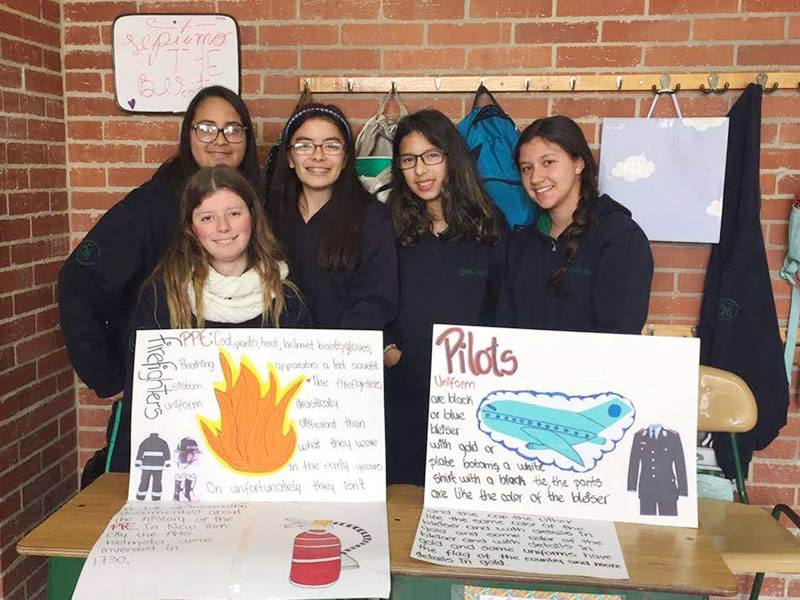 Septimo
Firefighters
PPE: Coat, pants, boot, helmet boots, gloves,
Breathing apparatus a fast
sistem.
uniform
• The firefighters
drastically
different than
what they wore
in the early years
On unfortunately they isn't
about
the history or the
PPE in New York
city the firts
helmets were
invented in
1730.
Pilots
Uniform
are black
or blue
bleiser
with gold or
plate botoms, a white
shirt with a black tie, the pants
are like the color of the bleiser
and the cap the other
like the same color of the
bleiser and with details in
gold and some color of the
bleiser and with details in
gold and some uniforms have
the flag of the country and more
details in gold.